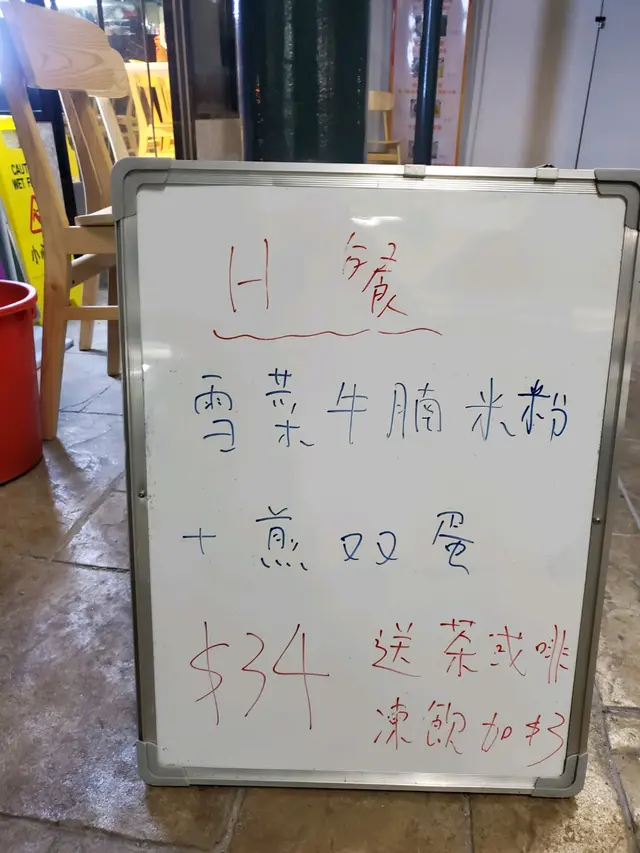 H 餐
雪菜牛腩米粉
+ 煎双蛋
$34 送茶或啡
凍飲加$3
CAUT
WET F
小心